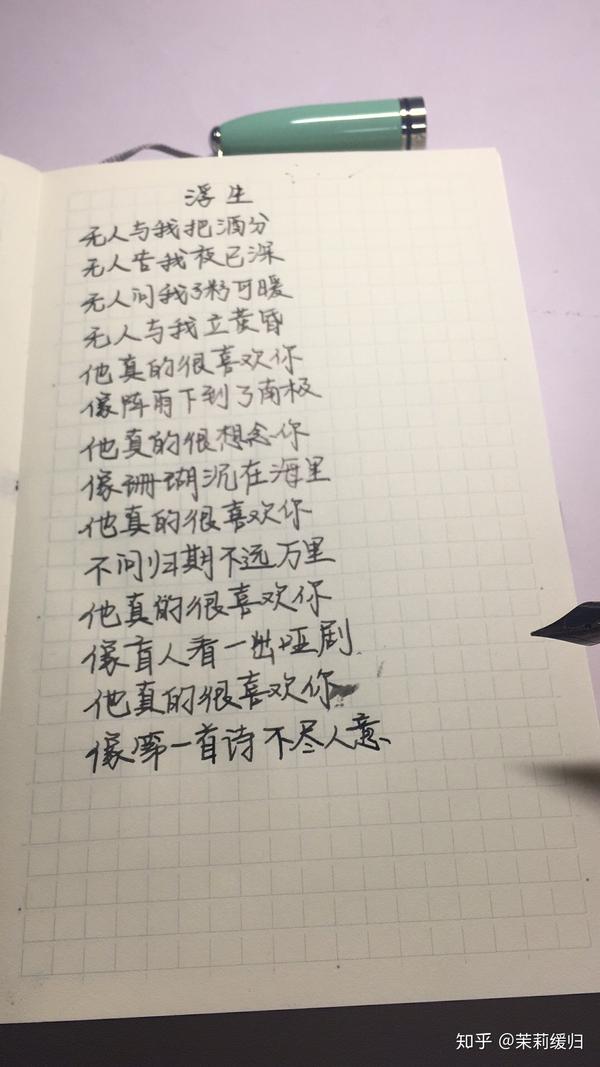 浮生
无人与我把酒分
无人告我夜已深
无人问我粥可暖
无人与我立黄昏
他真的很喜欢你
像阵雨下到了南极
他真的很想念你
像珊瑚沉在海里
他真的很喜欢你
不问归期不远万里
他真的很喜欢你
像盲人看一出哑剧
他真的很喜欢你
像第一首诗不尽人意
知乎 @茉莉缓归